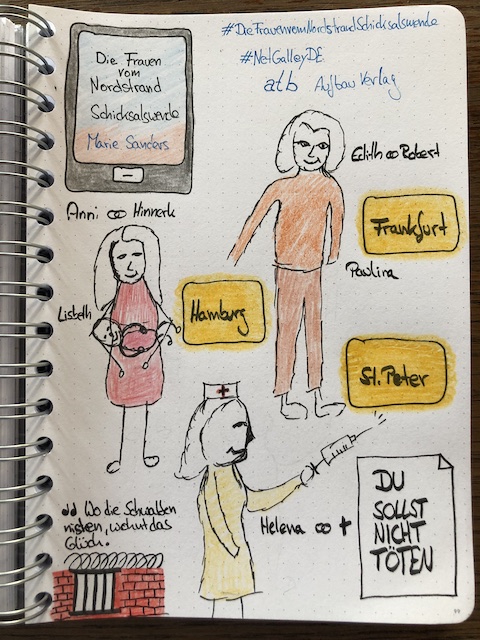 #DieFrauenvomNordstrandSchicksalswende
#NetGalleyDE
atb Aufbau Verlag
Die Frauen
vom
Nordstrand
Schicksalswende
Marie Sanders
Edith ∞ Robert
Frankfurt
Anni ∞ Hinnerk
Paulina
Lisbeth
Hamburg
St. Peter
Helena ∞ †
DU
SOLLST
NICHT
TÖTEN
" Wo die Schwalben
nisten, wohnt das
Glück.